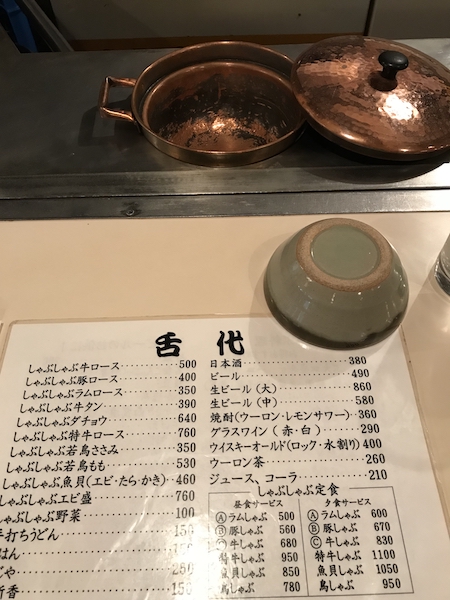 舌代
しゃぶしゃぶ牛ロース 500
しゃぶしゃぶ豚ロース 400
しゃぶしゃぶラムロース 350
しゃぶしゃぶ牛タン 390
しゃぶしゃぶダチョウ 640
しゃぶしゃぶ特牛ロース 760
しゃぶしゃぶ若鳥ささみ 350
しゃぶしゃぶ若鳥もも 530
しゃぶしゃぶ魚貝(エビ・たら・かき) 460
ゃぶしゃぶエビ盛 760
ゃぶしゃぶ野菜 100
手打ちうどん
はん
じや
新香 150
日本酒 380
ビール 490
生ビール(大) 860
生ビール(中) 580
焼酎(ウーロン・レモンサワー) 360
グラスワイン(赤・白) 290
ウイスキーオールド(ロック・水割り) 400
ウーロン茶 260
ジュース、コーラ 210
しゃぶしゃぶ定食
昼食サービス
Ⓐラムしゃぶ 500
Ⓑ豚しゃぶ 560
Ⓒ牛しゃぶ 680
特牛しゃぶ 950
魚貝しゃぶ 850
鳥しゃぶ 780
夕食サービス
Ⓐラムしゃぶ 600
Ⓑ豚しゃぶ 670
Ⓒ牛しゃぶ 830
特牛しゃぶ 1100
魚貝しゃぶ 1050
鳥しゃぶ 950